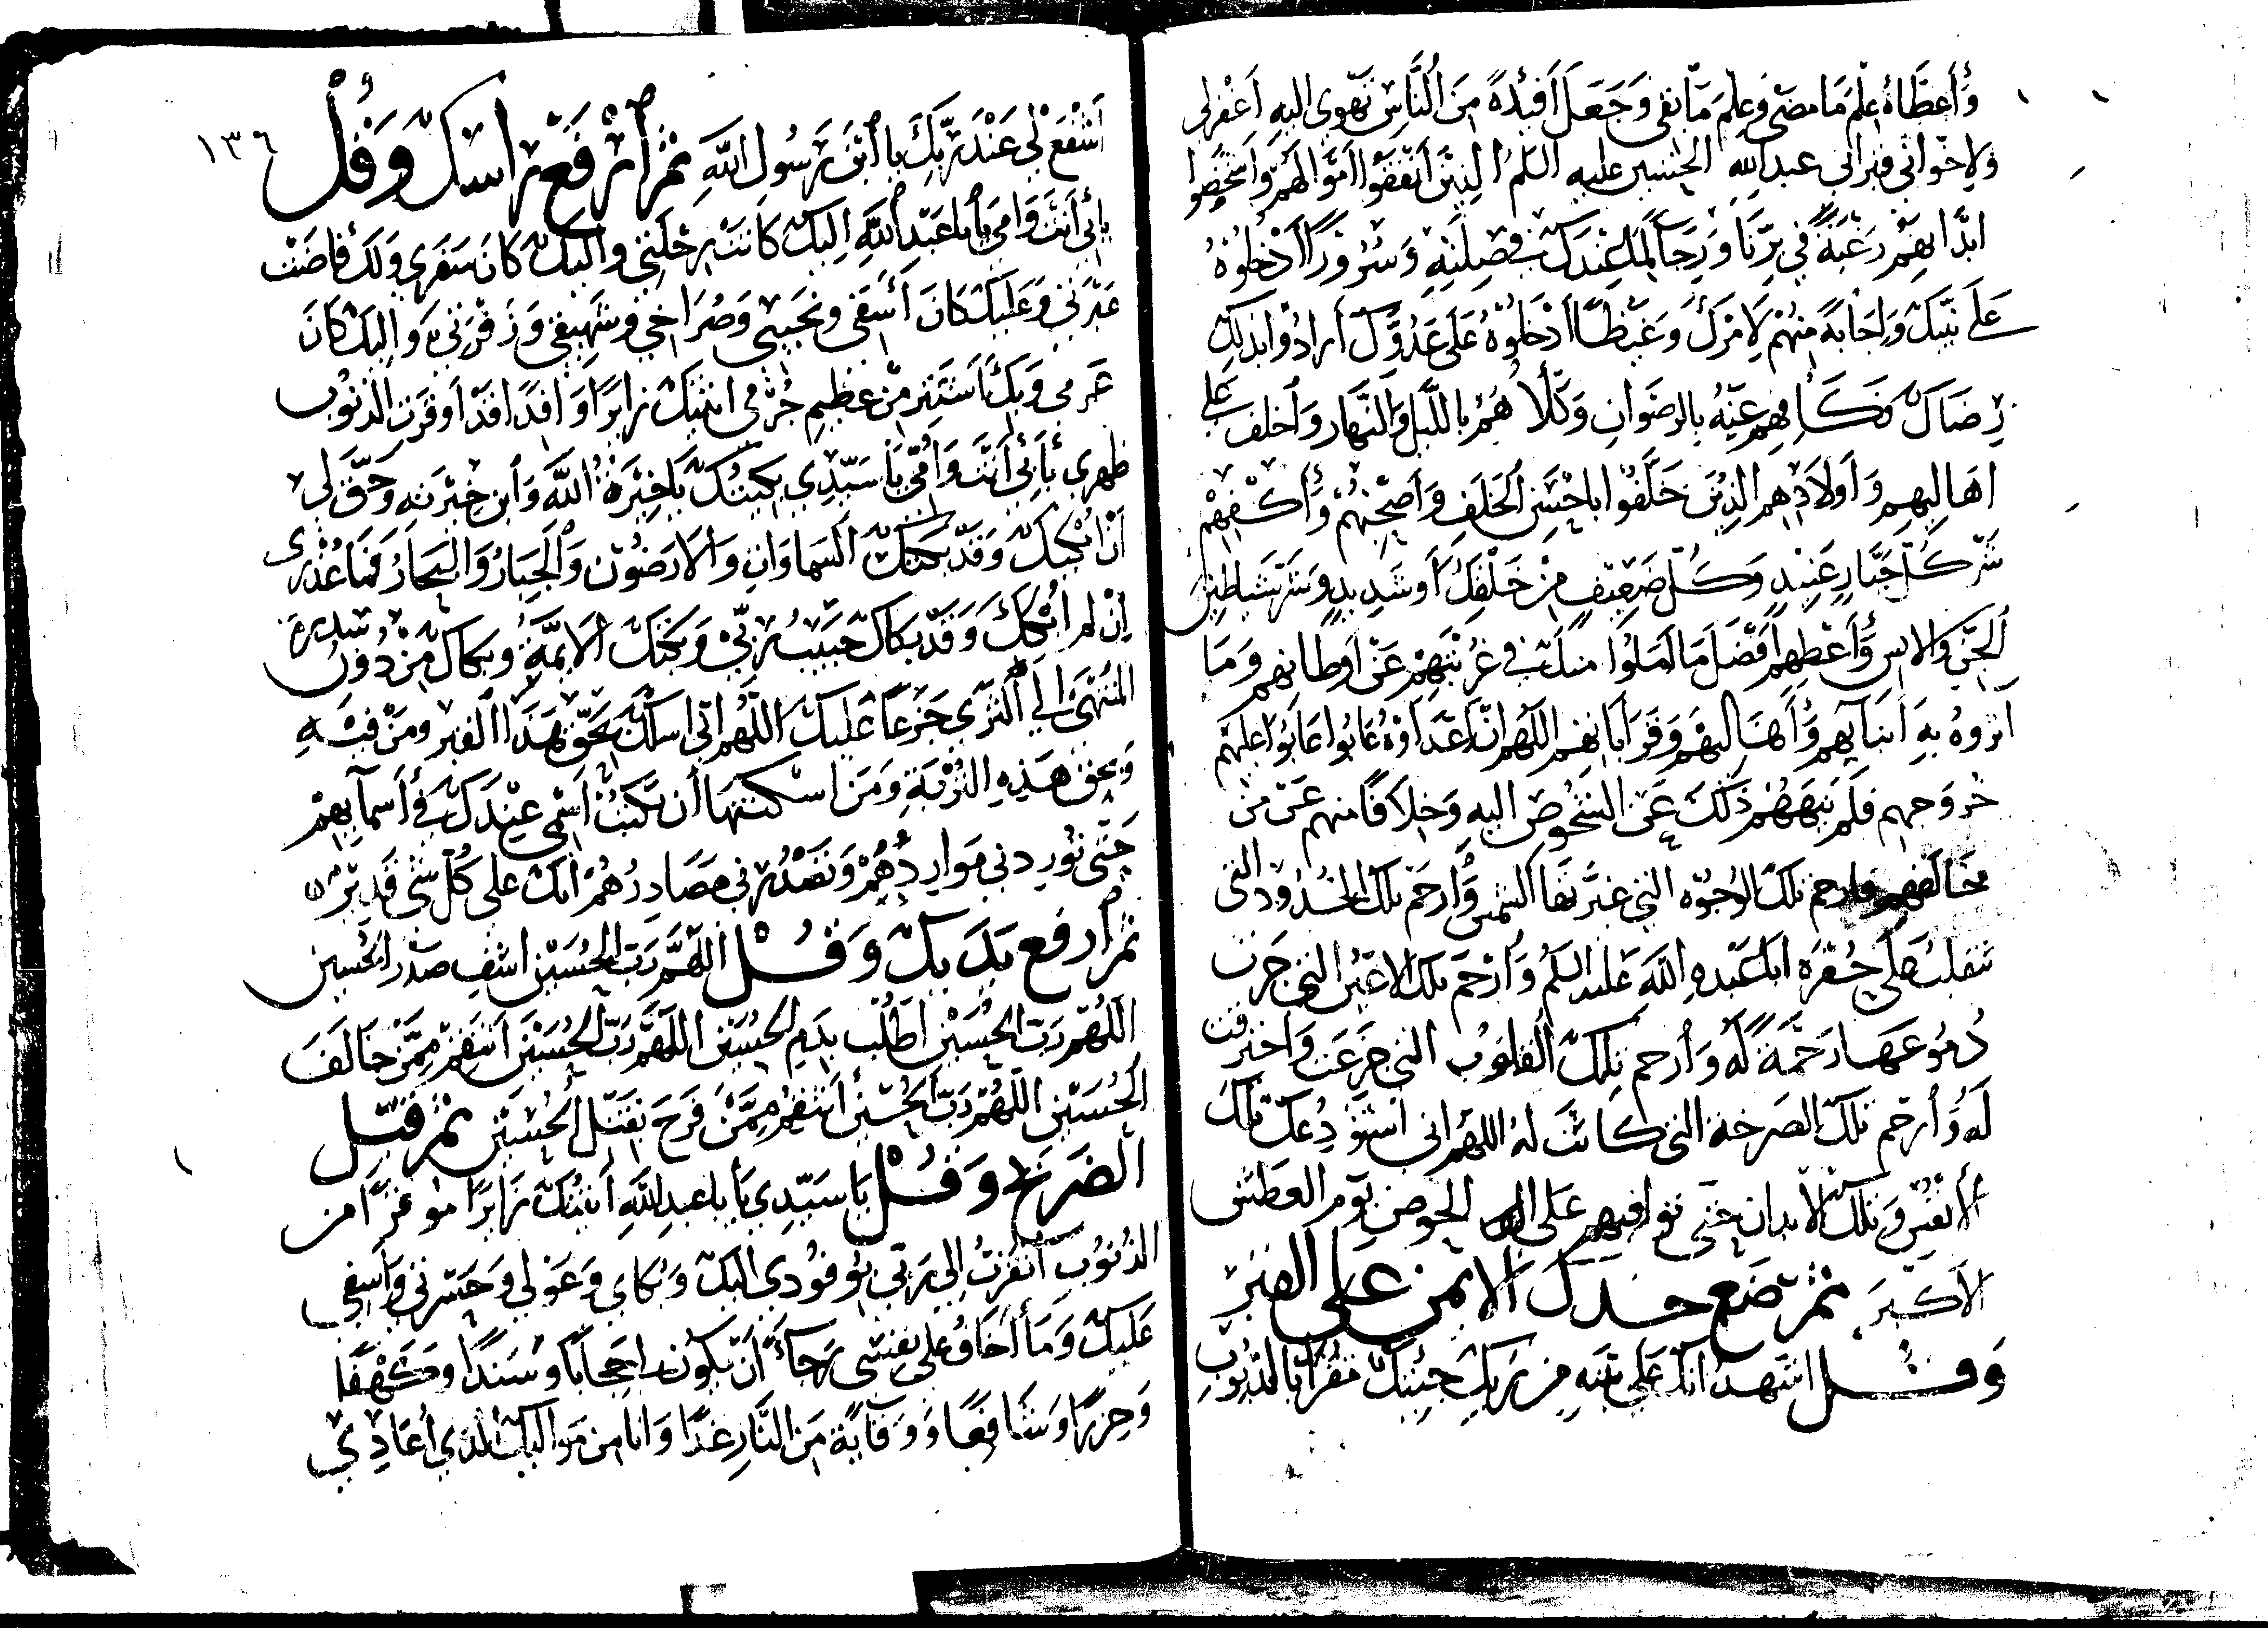 وَأَعطَاهُ عِلمَ مَا مَضَى وَعِلمَ مَا بَقِى وَجَعَلَ أَفئِدَةً مِنَ النَّاسِ تَهوِى اليهِ اغفرلى
ولاخوانى قبر ابى عبدالله الحسين عليه السلم الذين انفقوا اموالهم واشخصوا
ابدانهم رغبة فى برنا ورجآء لما عندك فى صلته وسرورا ادخلوه
على نبيك واجابة منهم لامرك وغيظا ادخلوه على عدوك ارادوا بذلك
رضاك فكافهم عنه بالرضوان وكلاهم بالليل والنهار واخلف على
اهاليهم واولادهم الذين خلفوا باحسن الخلف واصحبهم واكفهم
شر كل جبار عنيد وكل ضعيف من خلقك او شديد وشر شياطين
الجن والانس واعطهم افضل ما املوا منك فى غربتهم عن اوطانهم وما
اثروه به ابنآيهم واهاليهم وقراباتهم اللهم ان اعداوه عابوا عليهم
خروجهم فلم ينههم ذلك عن الشخوص اليه وخلافا منهم على من
خالفهم وارحم تلك الوجوه التى غيرتها الشمس وارحم تلك الخدود التى
تتقلب على حفرة ابى عبد الله عليه السلم وارحم تلك الاعين التى جرت
دموعها رحمة له وارحم تلك القلوب التى جزعت واحترقت
له وارحم تلك الصرخة التى كانت له اللهم انى استودعك تلك
الانفس وتلك الابدان حتى توافيهم على الحوض يوم العطش
الاكبر ثم تضع خدك الايمن على القبر
وقل اشهد انك على بينه من ربك جئتك مقرا بالذنوب
١٣٦
اشفع لى عند ربك يا ابن رسول الله ثم ارفع راسك وقل
بابى انت وامى يا ابا عبد الله اليك كانت رحلتى واليك كان سفرى ولك فاضت
عبرتى وعليك كان اسفى ونحيبى وصراخى وشهيقى وزفرتى واليك كان
عرمى وبك استتر من عظيم جرمى اتيتك زايرا وافدا قد اوقرت الذنوب
ظهرى بابى انت وامى يا سيدى بكيتك يا خيرة الله وابن خيرته وحق لى
ان ابكيك وقد بكتك السماوات والارضون والجبال والبحار فما عذرى
ان لم ابكك وقد بكاك حبيب ربى وبكتك الايمة وبكاك من دون سدرة
المنتهى الى الثرى جزعا عليك اللهم انى اسلك بحق هذا القبر ومن فيه
وبحق هذه التربة ومن اسكنتها ان تكتب اسمى عندك فى اسمآيهم
حتى توردنى مواردهم وتصدرنى مصادرهم انك على كل شى قدير
ثم ارفع يديك وقل اللهم رب الحسين اشف صدر الحسين
اللهم رب الحسين اطلب بدم الحسين اللهم رب الحسين انتقم ممن خالف
الحسين اللهم رب الحسين انتقم ممن فرح بقتل الحسين ثم قبل
الضريح وقل يا سيدى يا ابا عبدالله اتيتك زايرا موقرا من
الذنوب اتقرب الى ربى بوفودى اليك وبكاى وعولى وحسرتى واسفى
عليك وما اخاف على نفسى رجآء ان تكون لى حجابا وسندا وكهفا
وحرزا وشافعا ووقاية من النار غدا وانا من مواليك الذى اعادى